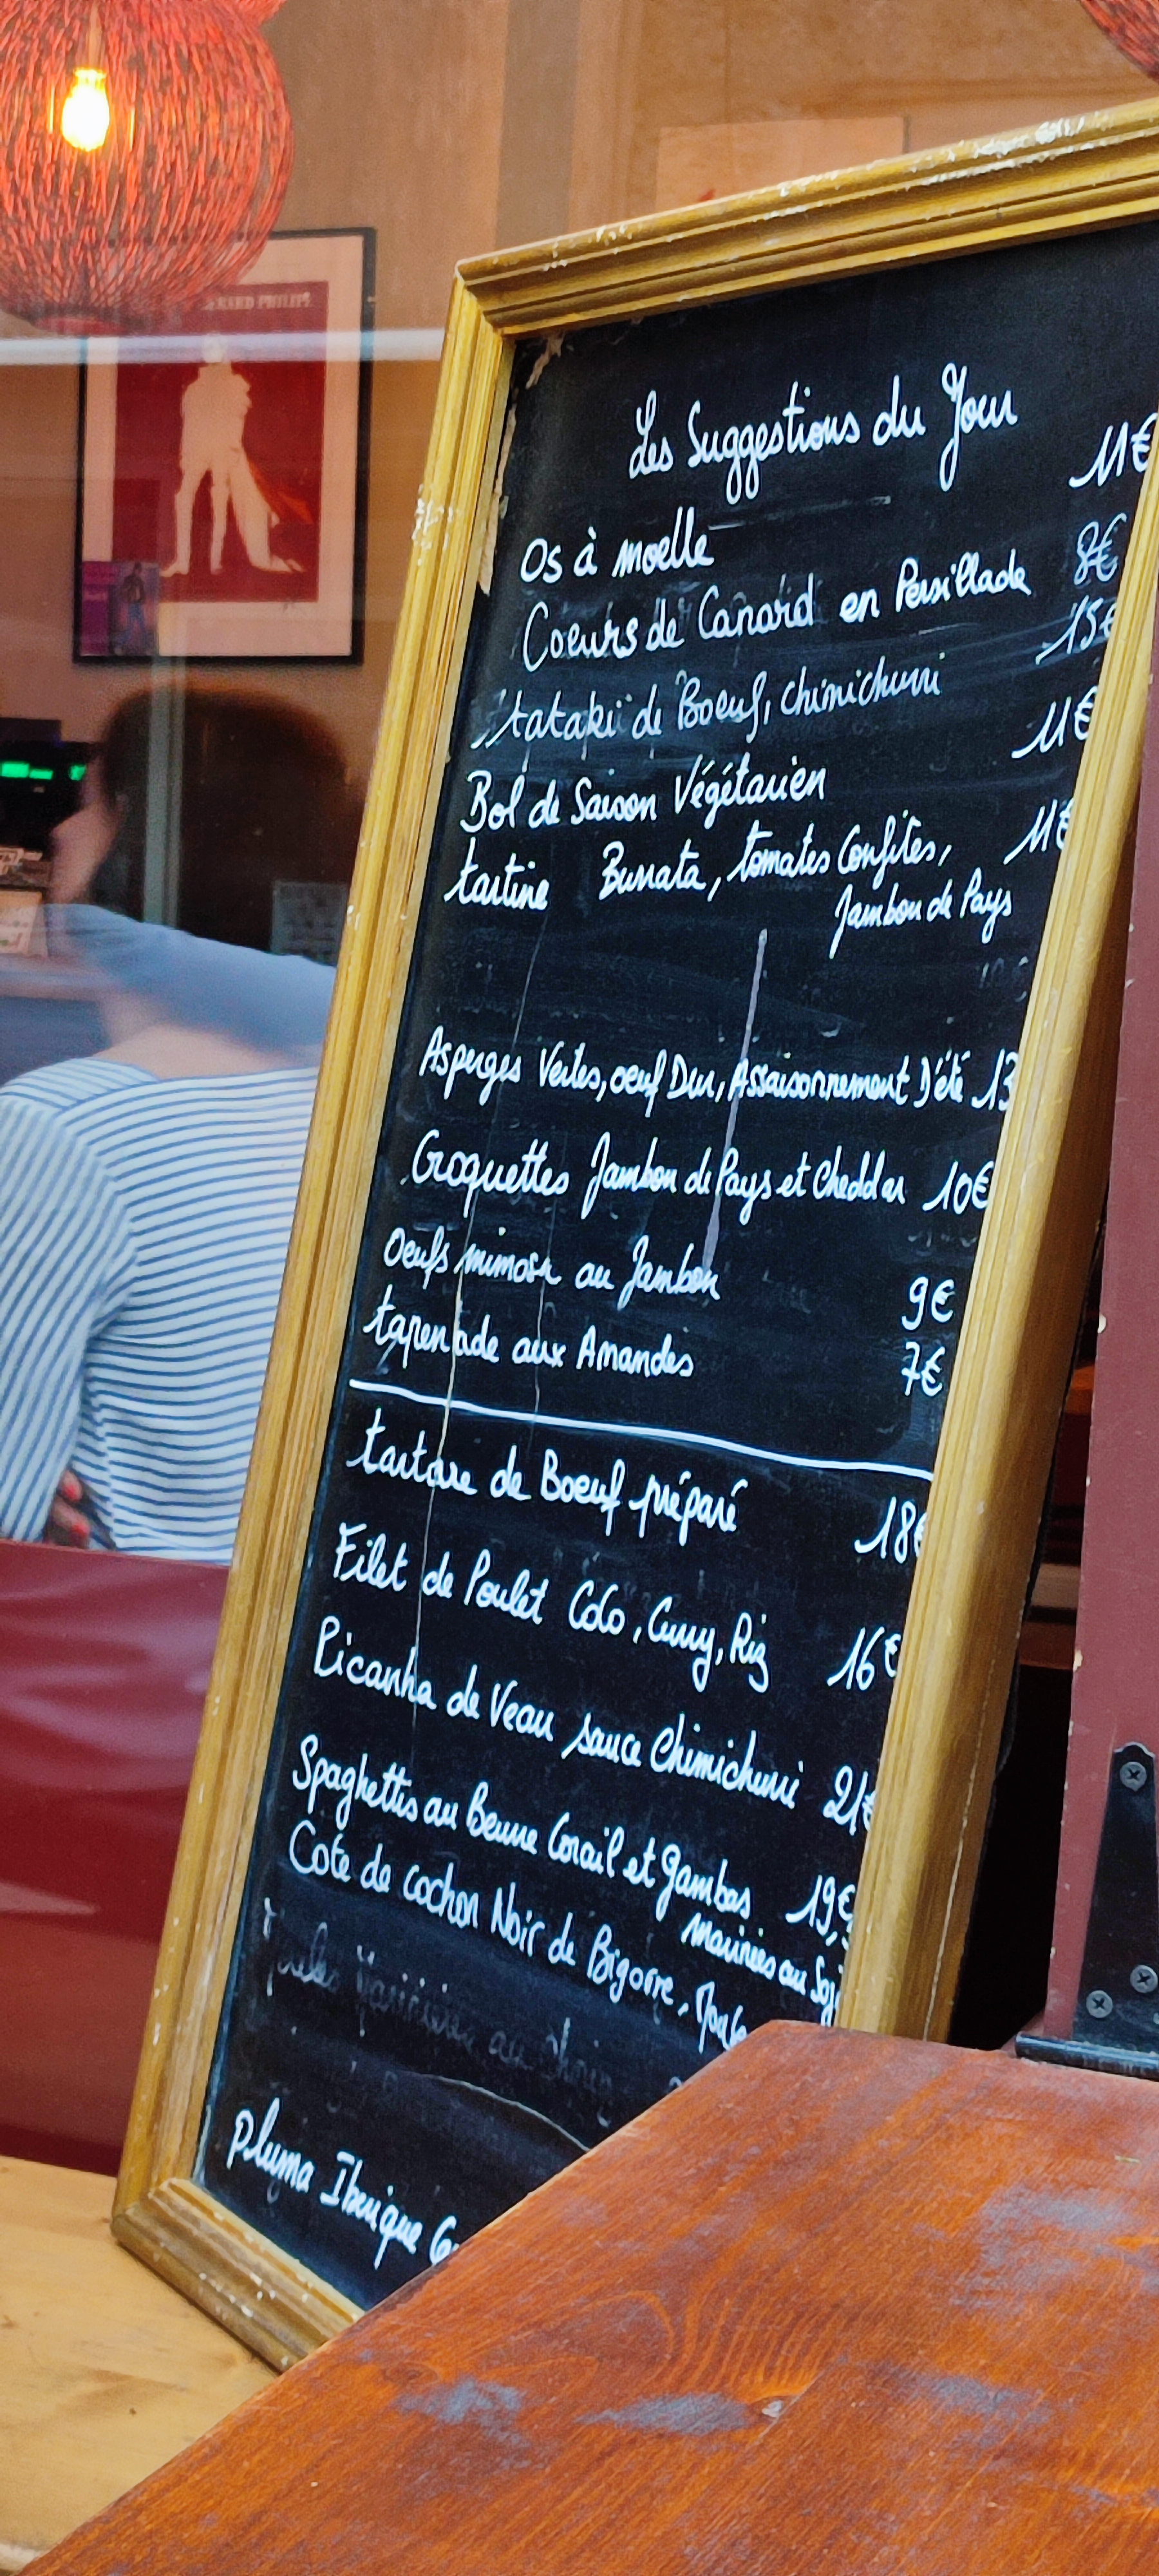 ERARD PHILIPE
Les Suggestions du Jour
Os à moelle 11€
Coeurs de Canard en Persillade 8€
tataki de Boeuf, chimichurri 15€
Bol de Saison Végétarien 11€
tartine Burrata, tomates Confites, 11€
Jambon de Pays
Asperges Vertes, oeuf Dur, Assaisonnement D'été 13
Croquettes Jambon de Pays et Cheddar 10€
Oeufs mimosa au Jambon 9€
tapenade aux Amandes 7€
tartare de Boeuf préparé 18€
Filet de Poulet Coco, Curry, Riz 16€
Picanha de Veau sauce Chimichurri 21€
Spaghettis au Beurre Corail et gambas 19€
marinées au Soj
Cote de cochon Noir de Bigorre,
Pluma Iberique